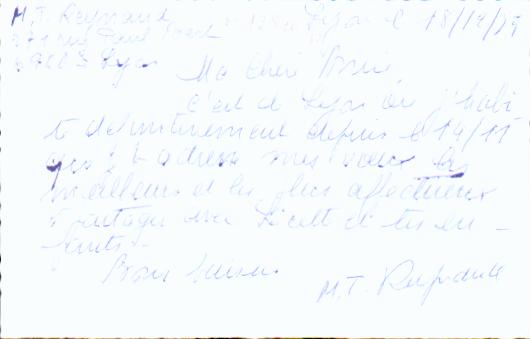 M.T. Reynaud Lyon le 18/12/79
rue Paul
Lyon
Ma chère
c'est de Lyon où j'habi
te définitivement depuis le 14/11
que j' adresse mes voeux les
meilleurs et les plus affectueux
à partager avec et tes en-
fants.
Bons baisers
M.T. Reynaud